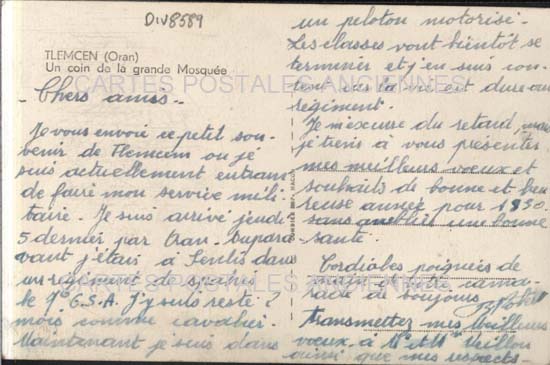 DIV8589
TLEMCEN (Oran)
Un coin de la grande Mosquée
CARTES POSTALES ANCIENNES
- Chers amis -
Je vous envoie ce petit sou-
venir de Tlemcem ou je
suis actuellement en train
de faire mon service mili-
taire. Je suis arrivé jeudi
5 dernier par Oran. Aupara
vant j'étais à Senlis dans
un régiment de spahis
le 7e G.S.A. J'y suis resté 2
mois comme cavalier.
Maintenant je suis dans
un peloton motorisé.
Les classes vont bientôt se
terminer et j'en suis con-
tent car la vie est dure au
régiment.
Je m'excuse du retard, mais
je tiens à vous présenter
mes meilleurs voeux et
souhaits de bonne et heu
reuse année pour 1950
sans oublier une bonne
santé.
CARTES POSTALES ANCIENNES
Cordiales poignées de
main d'un cama
rade de toujours
Transmettez mes meilleurs
voeux à Mr et Mme Veillon
ainsi que mes respects.